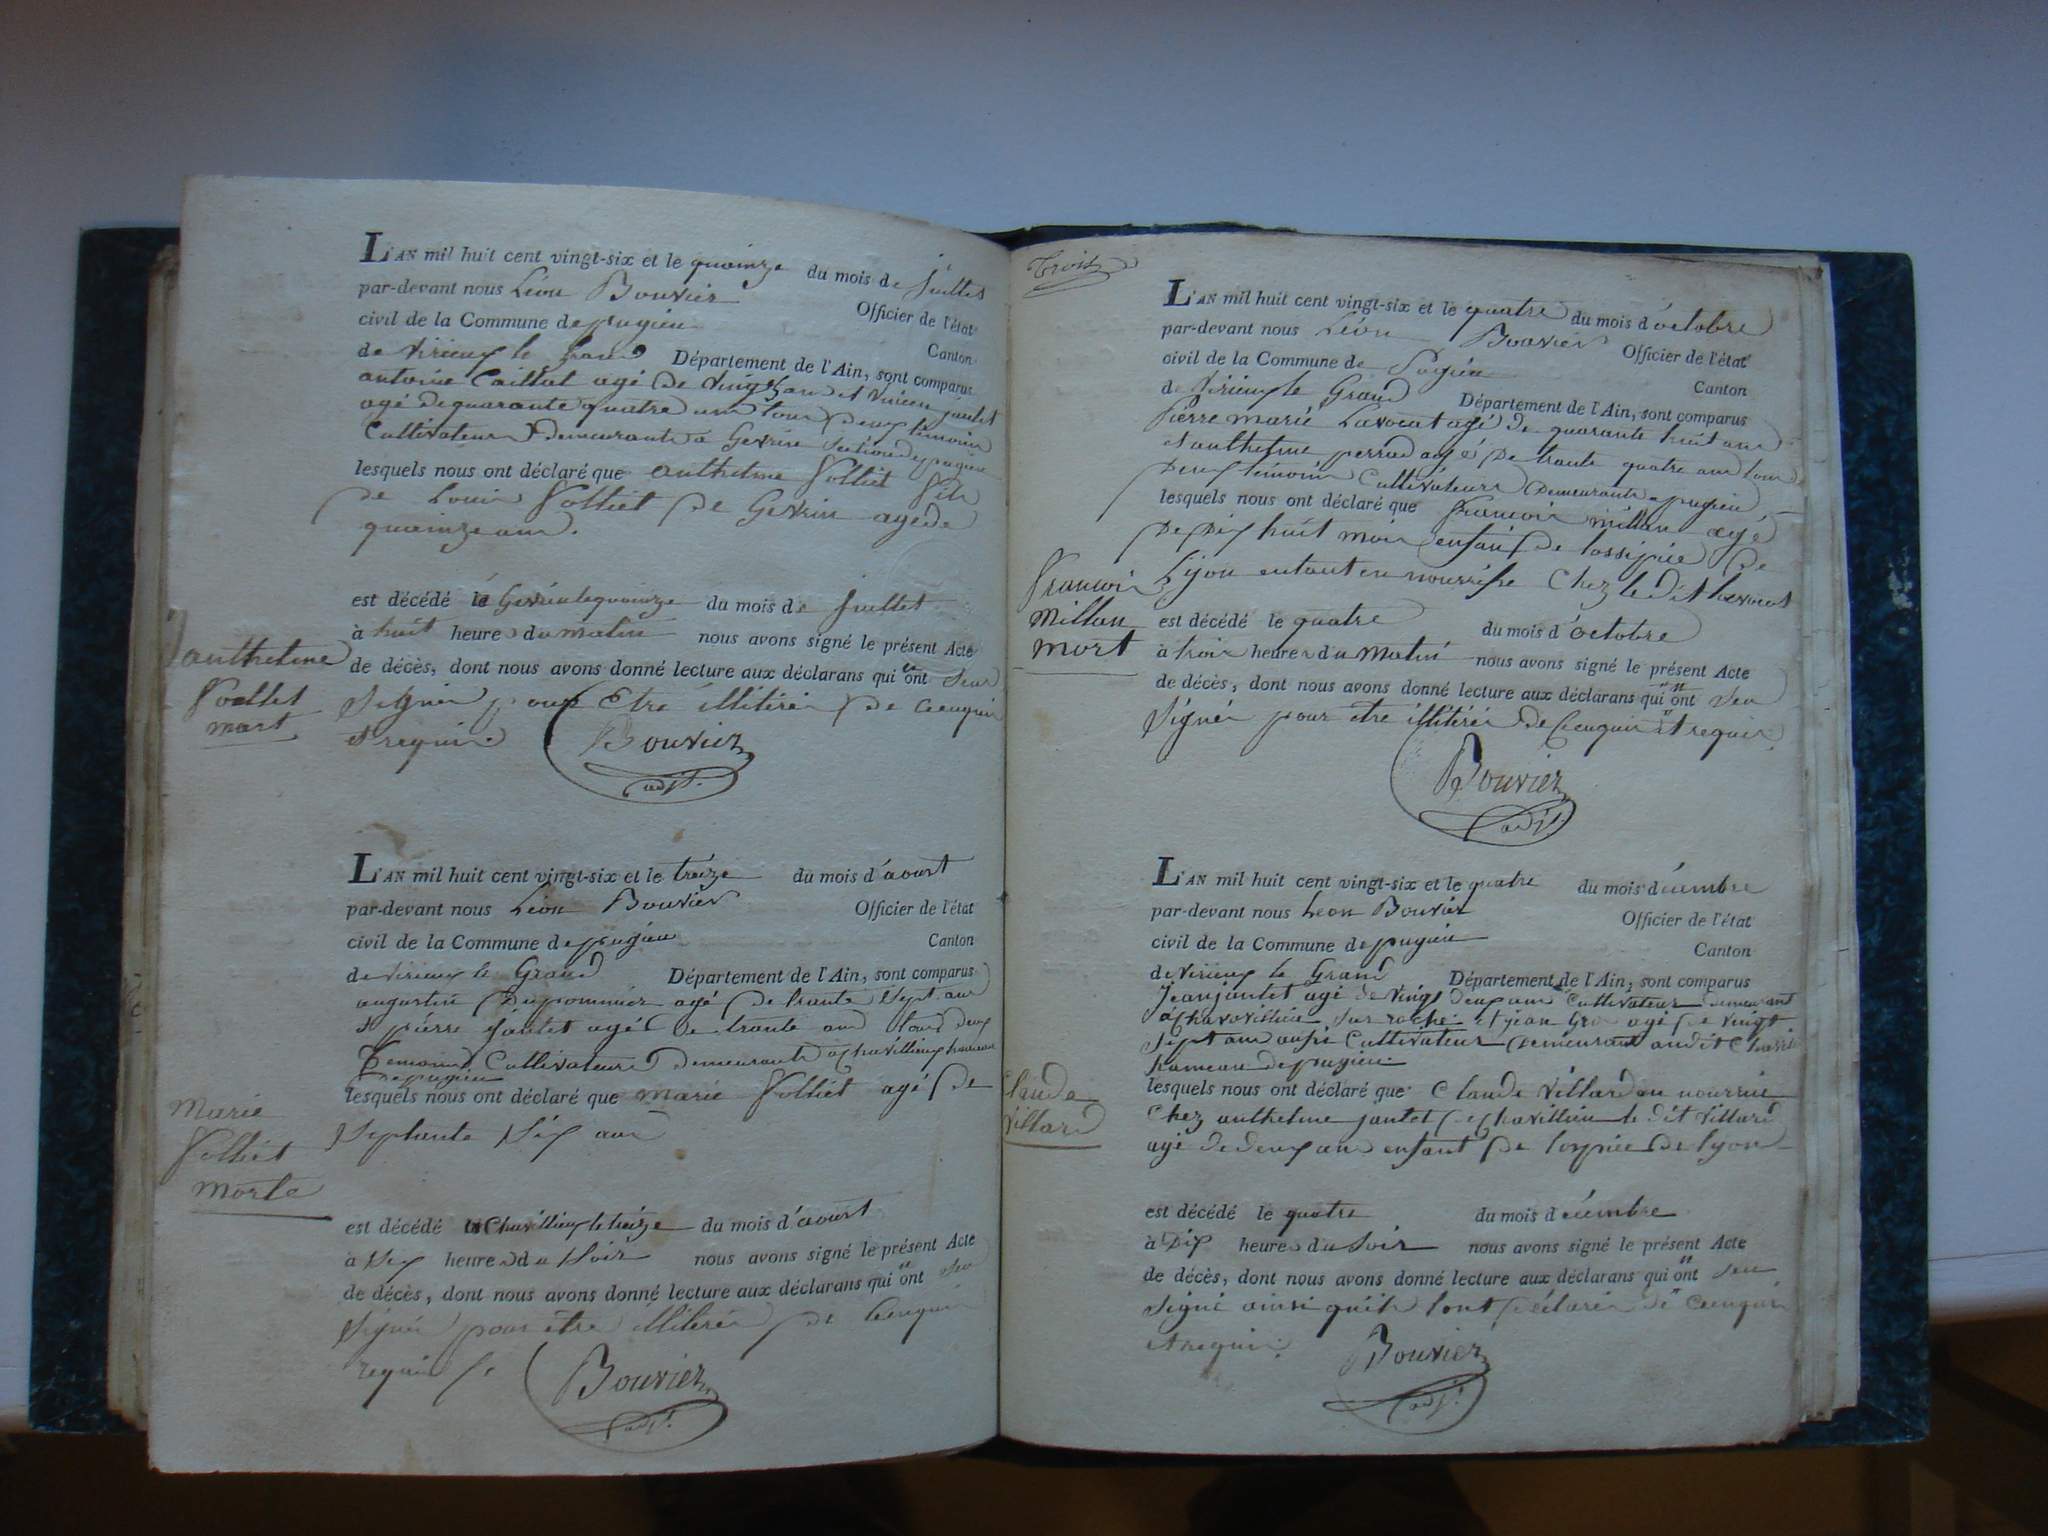 L'AN mil huit cent vingt-six et le quainze du mois de Juillet
par-devant nous Léon Bouvier Officier de l'état
civil de la Commune de pugieu Canton
de Virieux le Grand Département de l'Ain, sont comparus
antoine Caillat agé de vingt an et
agé de quarante quatre an tous deux témoins
Cultivateurs Demeurants a Gevrin de pugieu
lesquels nous ont déclaré que anthelme Volliet fils
de Louis Volliet de Gevrin agé de
quainze ans.
est décédé à Gevrin le quainze du mois de Juillet
à huit heures du matin nous avons signé le présent Acte
anthelme
Volliet
mort
de décès, dont nous avons donné lecture aux déclarans qui n'ont seu
Signer pour Etre illitérés de ce enquis
et requis.
Bouvier
adjt.
L'AN mil huit cent vingt-six et le treize du mois d'aoust
par-devant nous Léon Bouvier Officier de l'état
civil de la Commune de pugieu Canton
de Virieux le Grand Département de l'Ain, sont comparus
augustin Dupommier agé de trante sept ans
et pierre jantet agé de trante ans tous deux
Temoins Cultivateurs Demeurants a Chavillieux hameau
de pugieu
lesquels nous ont déclaré que marie Volliet agé de
Septante Six ans
Marie
Volliet
Morte
est décédé à Chavillieux le treize du mois d'aoust
à Six heures du Soir nous avons signé le présent Acte
de décès, dont nous avons donné lecture aux déclarans qui n'ont seu
Signer pour être illitérés de ce enquis
requis
Bouvier
adjt.
Trois
L'AN mil huit cent vingt-six et le quatre du mois d'octobre
par-devant nous Léon Bouvier Officier de l'état
civil de la Commune de Pugieu Canton
de Virieux le Grand Département de l'Ain, sont comparus
Pierre marie Lavocat agé de quarante huit ans
et anthelme perrud agé de trante quatre ans tous
Deux témoins Cultivateurs Demeurants a pugieu
lesquels nous ont déclaré que francois millan agé
De Dix huit mois enfant de de
Lyon en nourrisse Chez le Dit lavocat
francois
Millan
mort
est décédé le quatre du mois d'octobre
à trois heures du Matin nous avons signé le présent Acte
de décès, dont nous avons donné lecture aux déclarans qui n'ont seu
Signer pour être illitérés de ce enquis et requis.
Bouvier
adjt.
L'AN mil huit cent vingt-six et le quatre du mois décembre
par-devant nous Léon Bouvier Officier de l'état
civil de la Commune de pugieu Canton
de Virieux le Grand Département de l'Ain, sont comparus
Jean jantet agé de vingt deux ans Cultivateur demeurant
a Chavillieu sur roche et jean Gros agé de vingt
Sept ans aussi Cultivateur Demeurant audit
hameau de pugieu
lesquels nous ont déclaré que Claude Villard en nourrice
Chez anthelme jantet de Chavillieu le dit Villard
agé de deux ans enfant de de lyon
Claude
Villard
est décédé le quatre du mois décembre
à Dix heures du Soir nous avons signé le présent Acte
de décès, dont nous avons donné lecture aux déclarans qui n'ont seu
Signé ainsi quils l'ont déclarés de ce enquis
et requis.
Bouvier
adjt.